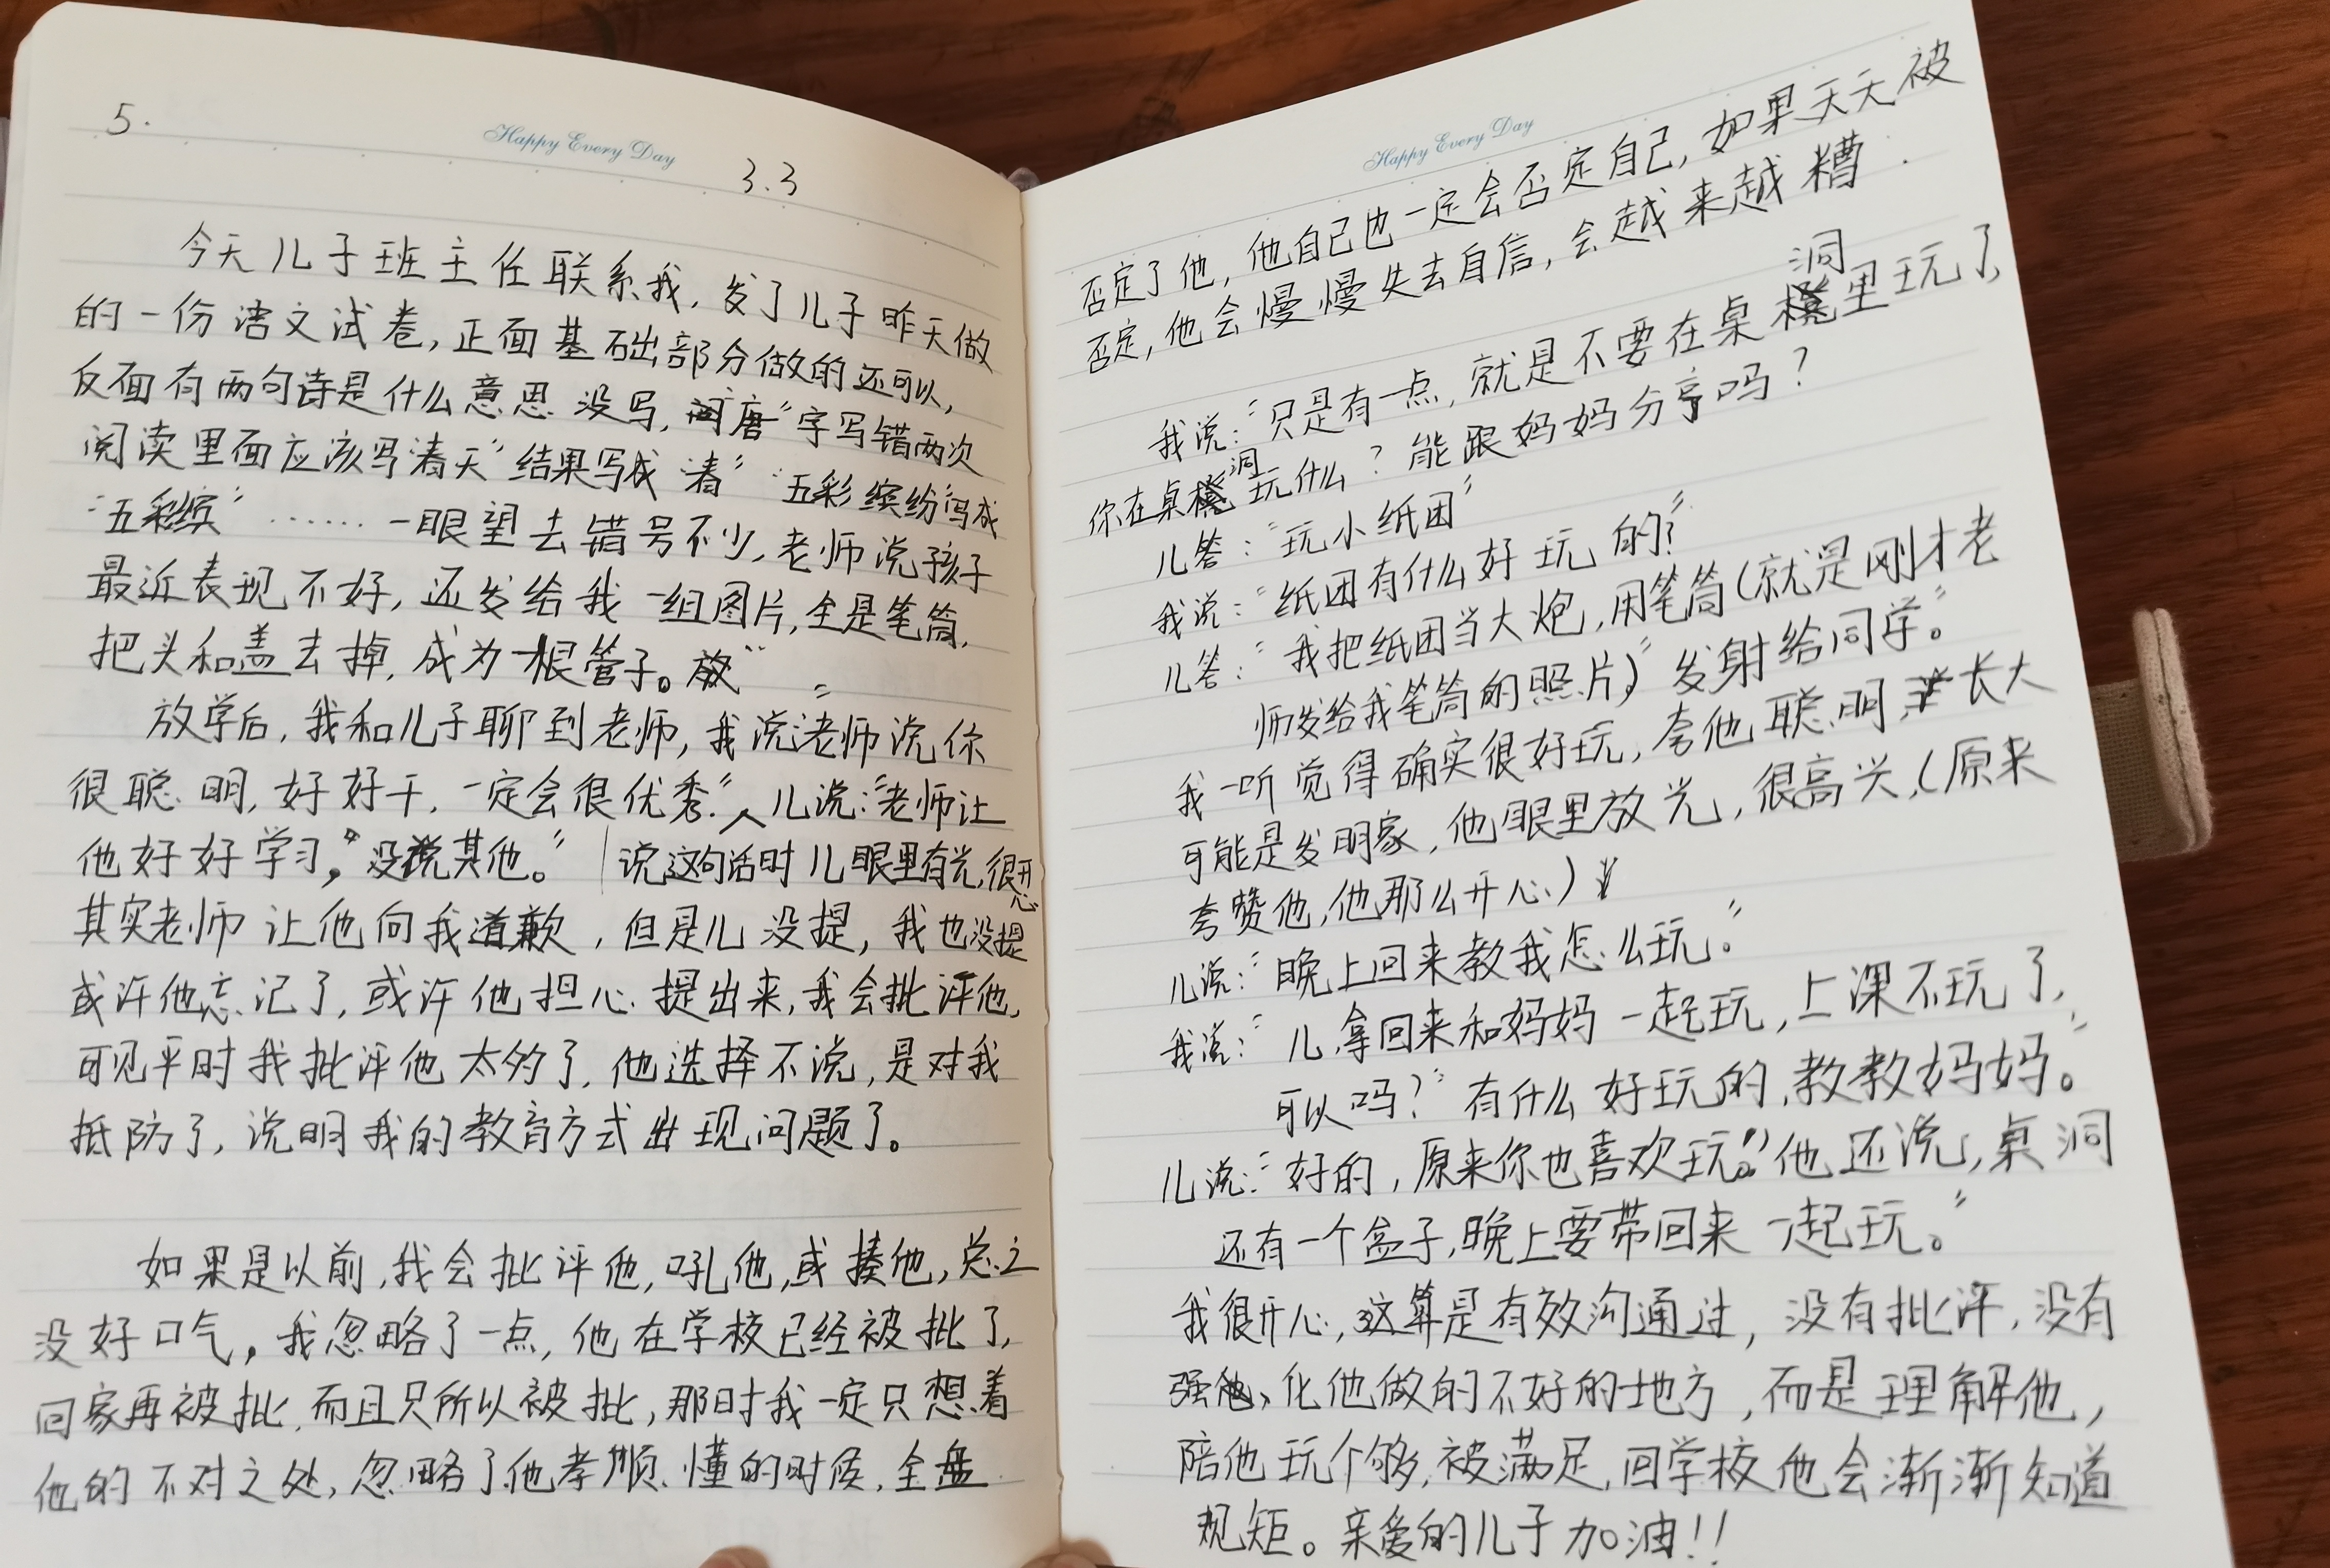 5.
Happy Every Day
3.3
今天儿子班主任联系我，发了儿子昨天做
的一份语文试卷，正面基础部分做的还可以，
反面有两句诗是什么意思没写，"唐"字写错两次
阅读里面应该写"春天"结果写成"春" "五彩缤纷"写成
"五彩缤"……一眼望去错号不少，老师说孩子
最近表现不好，还发给我一组图片，全是笔筒，
把头和盖去掉，成为一根管子。
放学后，我和儿子聊到老师，我说："老师说你
很聪明，好好干，一定会很优秀."儿说："老师让
他好好学习，"没说其他。" 说这句话时儿眼里有光，很开心
其实老师让他向我道歉，但是儿没提，我也没提
或许他忘记了，或许他担心提出来，我会批评他，
可见平时我批评他太多了，他选择不说，是对我
抵防了，说明我的教育方式出现问题了。
如果是以前，我会批评他，吼他，或揍他，总之
没好口气。我忽略了一点，他在学校已经被批了，
回家再被批，而且只所以被批，那时我一定只想着
他的不对之处，忽略了他孝顺、懂的时候，全盘
Happy Every Day
否定了他，他自己也一定会否定自己，如果天天被
否定，他会慢慢失去自信，会越来越糟.
我说："只是有一点，就是不要在桌洞里玩了，
你在桌洞玩什么？能跟妈妈分享吗？
儿答："玩小纸团"
我说："纸团有什么好玩的？"
儿答："我把纸团当大炮，用笔筒（就是刚才老
师发给我笔筒的照片）"发射给同学。"
我一听觉得确实很好玩，夸他聪明，长大
可能是发明家，他眼里放光，很高兴，（原来
夸赞他，他那么开心）
儿说："晚上回来教我怎么玩."
我说："儿，拿回来和妈妈一起玩，上课不玩了，
可以吗？"有什么好玩的，教教妈妈。"
儿说："好的，原来你也喜欢玩。"他还说，桌洞
还有一个盒子，晚上要带回来一起玩。"
我很开心，这算是有效沟通过，没有批评，没有
强化他做的不好的地方，而是理解他，
陪他玩个够，被满足，回学校他会渐渐知道
规矩。亲爱的儿子加油！！